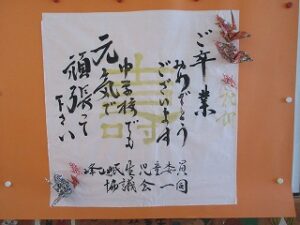 ご卒業
おめでとう
ございます
中学校でも
元気で
頑張って
下さい
児童委員
協議会一同
壽